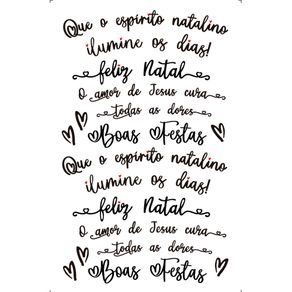 Que o espírito natalino
ilumine os dias!
feliz Natal
O amor de Jesus cura
todas as dores
Boas Festas
Que o espírito natalino
ilumine os dias!
feliz Natal
O amor de Jesus cura
todas as dores
Boas Festas